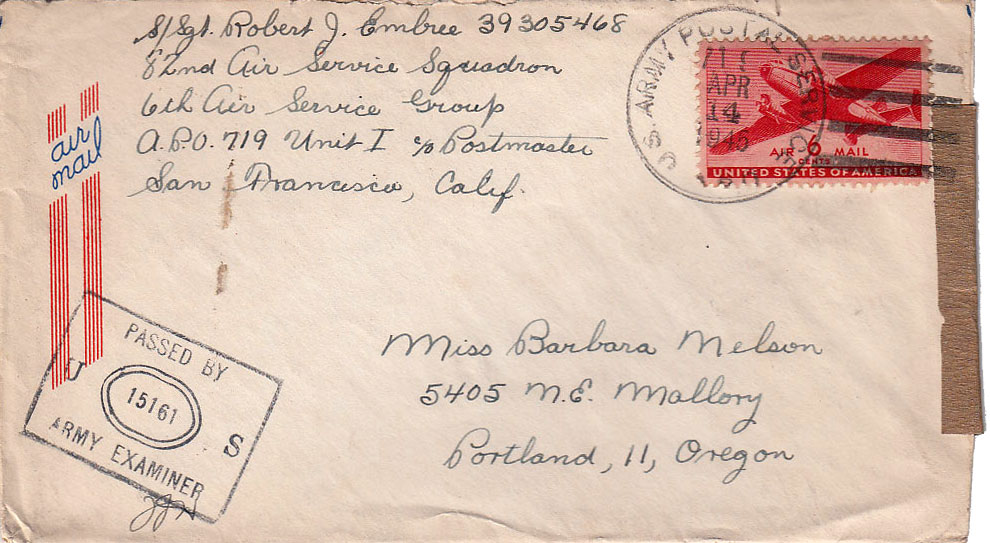 S/Sgt. Robert J. Embree 39305468
82nd Air Service Squadron
6th Air Service Group
A.P.O. 719 Unit I c/o Postmaster
San Francisco, Calif.
air
mail
U.S. ARMY POSTAL SERVICE
APR
14
1945
AIR 6 MAIL
CENTS
UNITED STATES OF AMERICA
PASSED BY
U 15161 S
ARMY EXAMINER
Miss Barbara Nelson
5405 N.E. Mallory
Portland, 11, Oregon